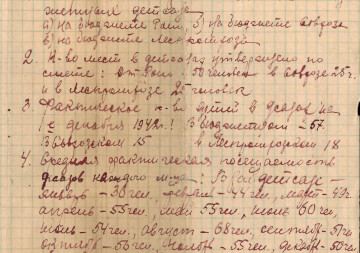 живших детсада
а) на бюджете Рай, б) на бюджете совхоза
в) на бюджете Леспромхоза
2. К-во мест в детсадах утверждено по
смете: От Роно: 50 человек в совхозе 25 ч.
и в Лемпромхозе 25 человек
3. Фактическое к-во детей в д/садах на
1е декабря 1942 г.: В бюджетном - 57
В Совхозском 15 в Лемпромхозском 18
4. Средняя фактическая посещаемость
д/садов каждого м-ца: Рай детсаде -
январь - 30 чел. февраль - 44 чел, март - 49 ч.
апрель - 55 чел, май 55 чел, июнь 60 чел,
июль - 54 чел, август - 68 чел, сентябрь - 51 ч
октябрь - 56 чел, ноябрь - 55 чел, декабрь - 50 чел.